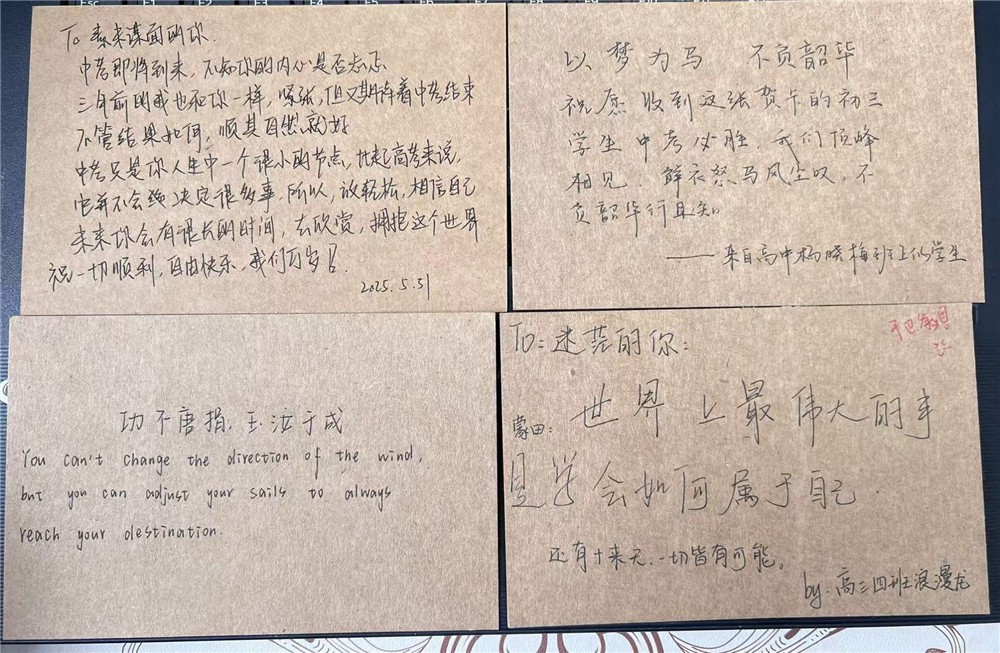 To 素未谋面的你
中考即将到来，不知你的内心是否忐忑
三年前的我也和你一样，紧张，但又期待着中考结束
不管结果如何，顺其自然就好
中考只是你人生中一个很小的节点，比起高考来说，
它并不会决定很多事．所以，放轻松，相信自己
未来你会有很长的时间，去欣赏，拥抱这个世界
祝一切顺利，自由快乐，我们万岁！
2025.5.31
以梦为马 不负韶华
祝愿收到这张贺卡的初三
学生中考必胜．我们顶峰
相见．鲜衣怒马风尘叹，不
负韶华行且知
——来自高中杨晓梅班上的学生
功不唐捐，玉汝于成
You can't change the direction of the wind,
but you can adjust your sails to always
reach your destination.
To：迷茫的你：
蒙田：世界上最伟大的事
是学会如何属于自己．
还有十来天．一切皆有可能。
by：高三四班浪漫龙